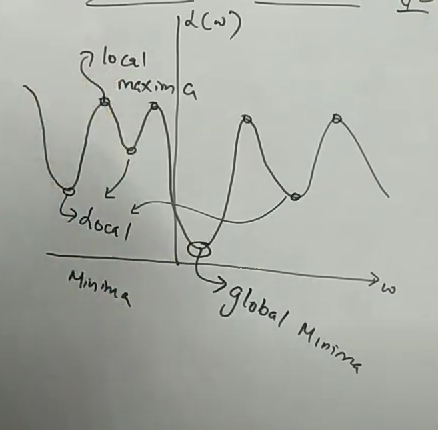 L(w)
local
maxima
Local
Minima
w
global Minima